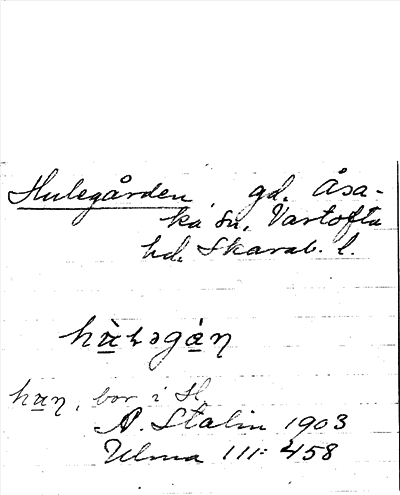 Hulegården, gd. Åsa-
ka sn, Vartofta
hd. Skarab. l.
hù̲ɫəgá̲ṇ
ha̲n, bor i H.
A. Stalin 1903
Ulma 111: 458